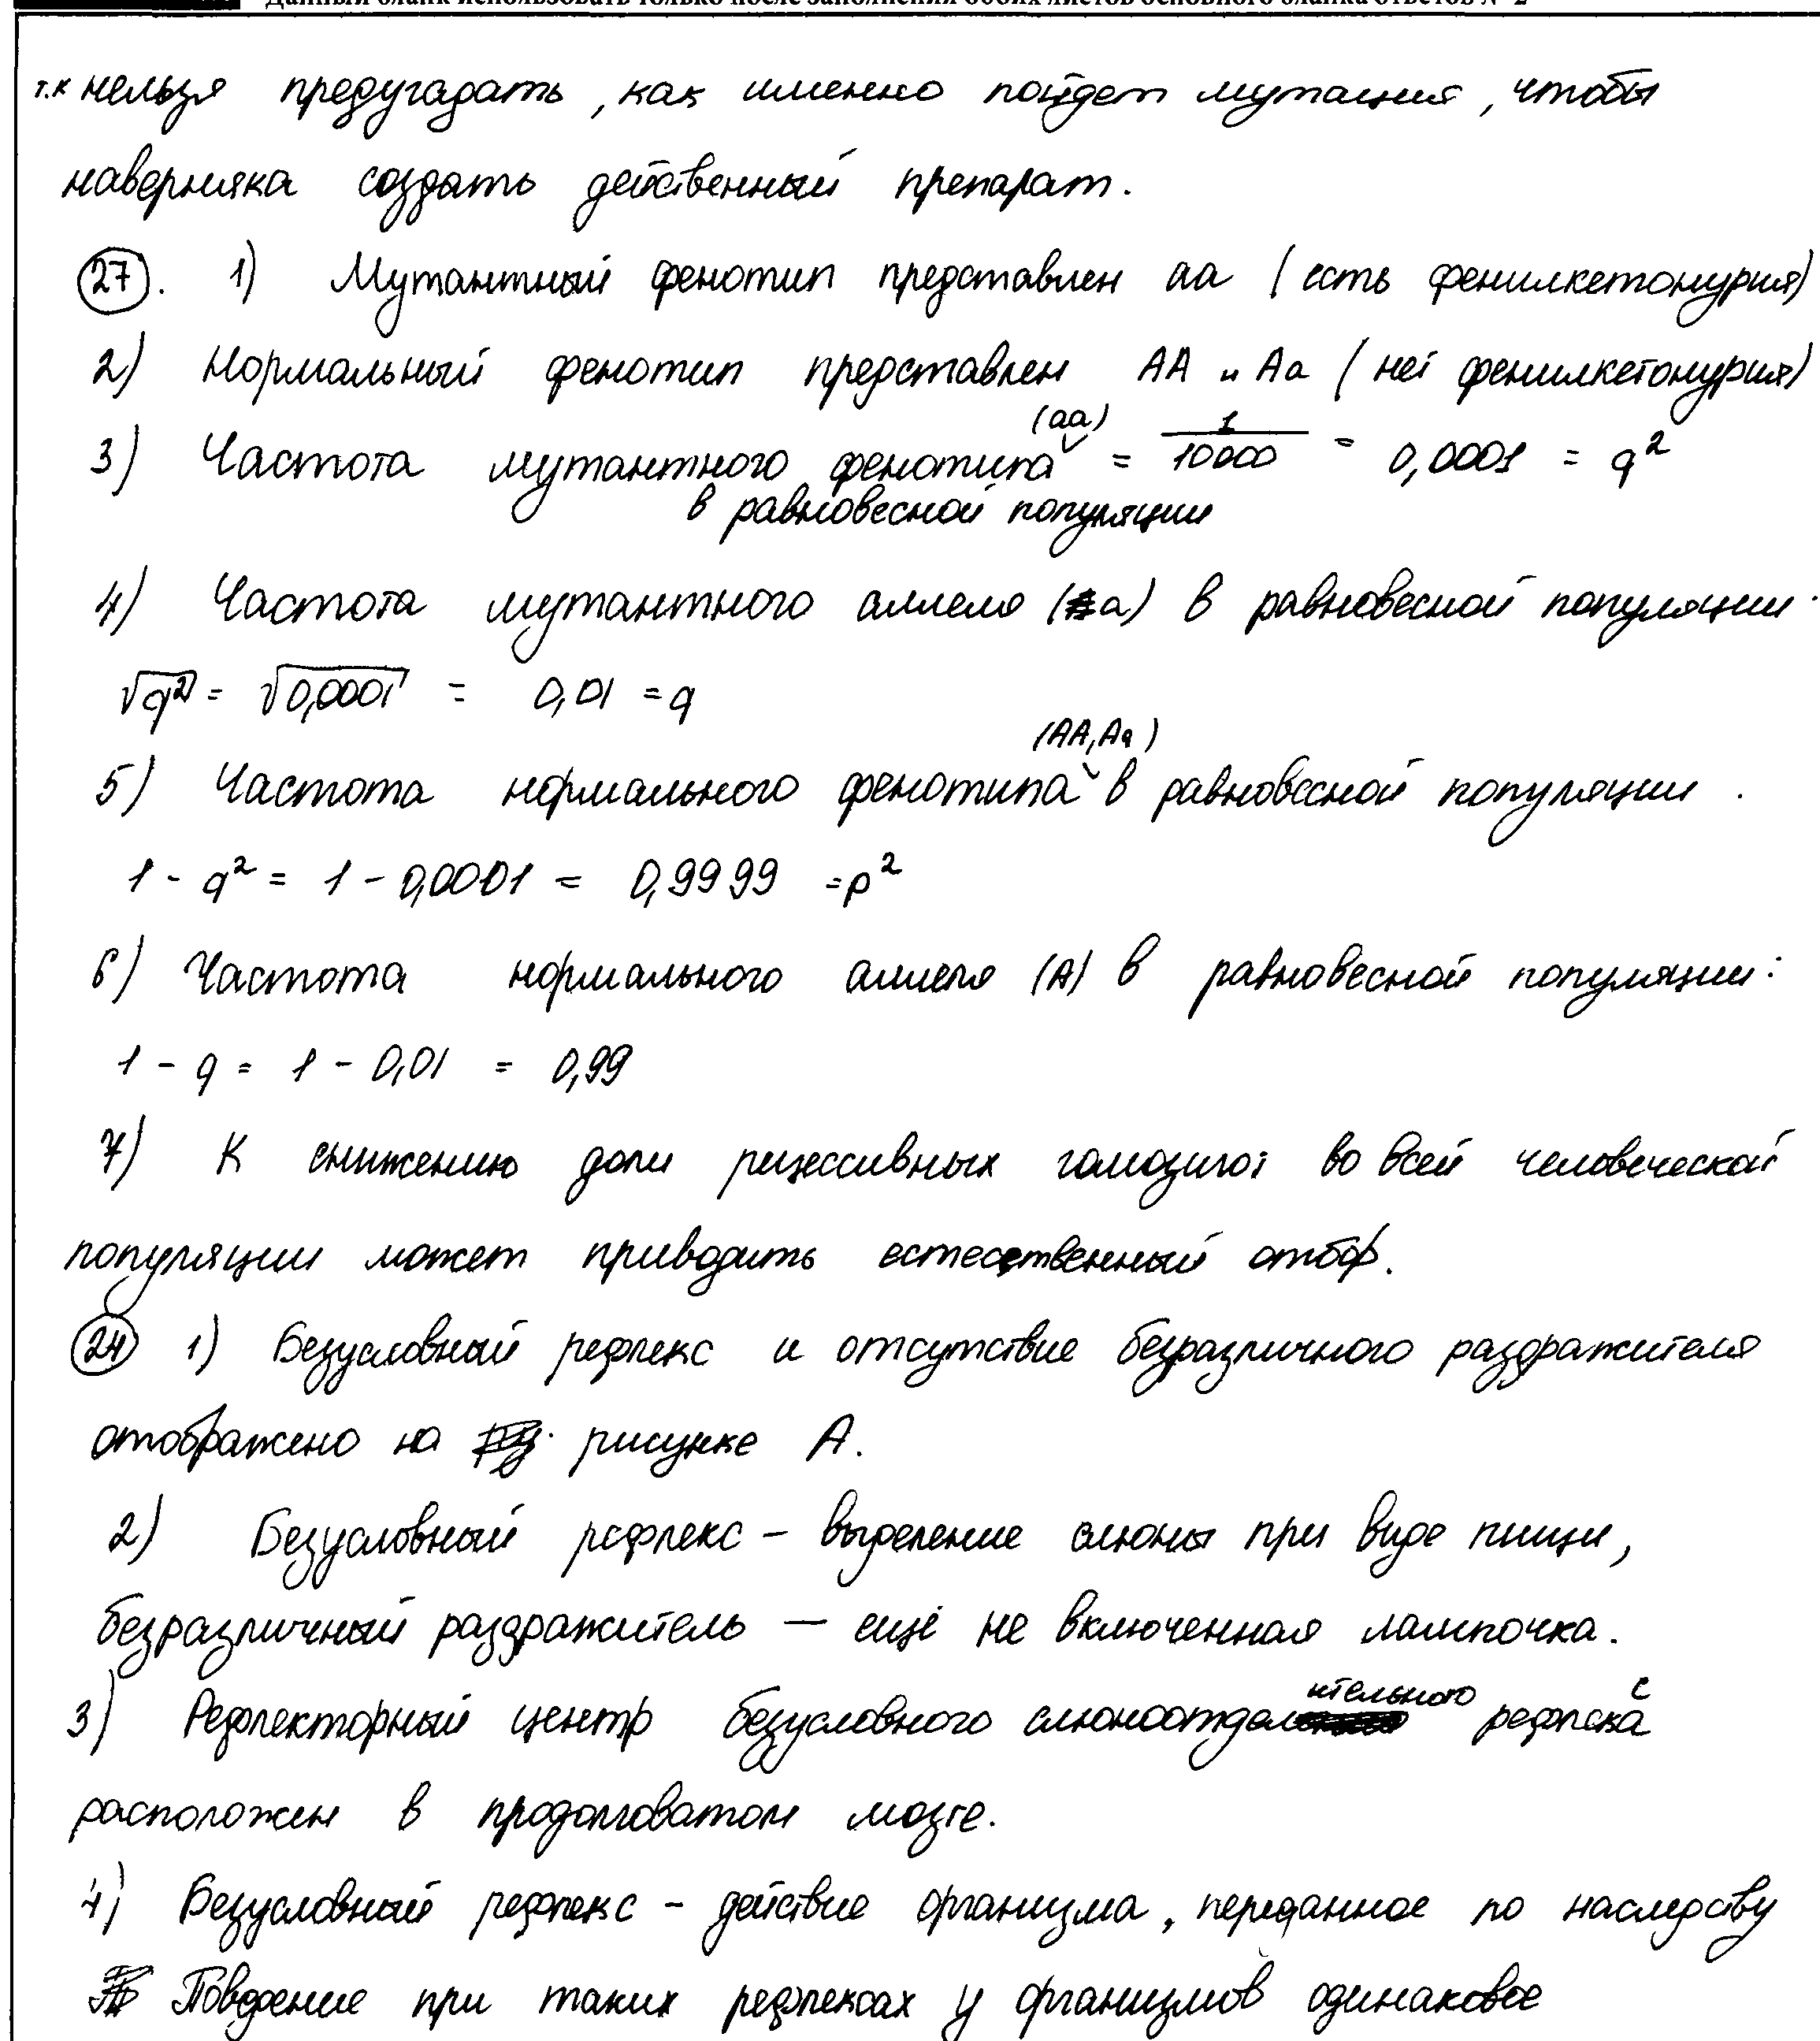 Данный бланк использовать только после заполнения обоих листов основного бланка ответов № 2
т.к нельзя предугадать, как именно пойдет мутация, чтобы
наверняка создать действенный препарат.
27. 1) Мутантный фенотип представлен аа (есть фенилкетонурия)
2) Нормальный фенотип представлен АА и Аа (нет фенилкетонурия)
3) Частота мутантного фенотипа (аа) = 1/10000 = 0,0001 = q²
в равновесной популяции
4) Частота мутантного аллеля (а) в равновесной популяции.
√q² = √0,0001 = 0,01 = q
5) Частота нормального фенотипа (АА, Аа) в равновесной популяции.
1 - q² = 1 - 0,0001 = 0,9999 = p²
6) Частота нормального аллеля (А) в равновесной популяции:
1 - q = 1 - 0,01 = 0,99
7) К снижению доли рицессивных гомозигот во всей человеческой
популяции может приводить естесственный отбор.
24 1) Безусловный рефлекс и отсутствие безразличного раздражителя
отображено на рисунке А.
2) Безусловный рефлекс - выделение слюны при виде пищи,
безразличный раздражитель — ещё не включенная лампочка.
3) Рефлекторный центр безусловного слюноотделительного рефлекса
расположен в продолговатом мозге.
4) Безусловный рефлекс - действие организма, переданное по наследству
Поведение при таких рефлексах у организмов одинаковое